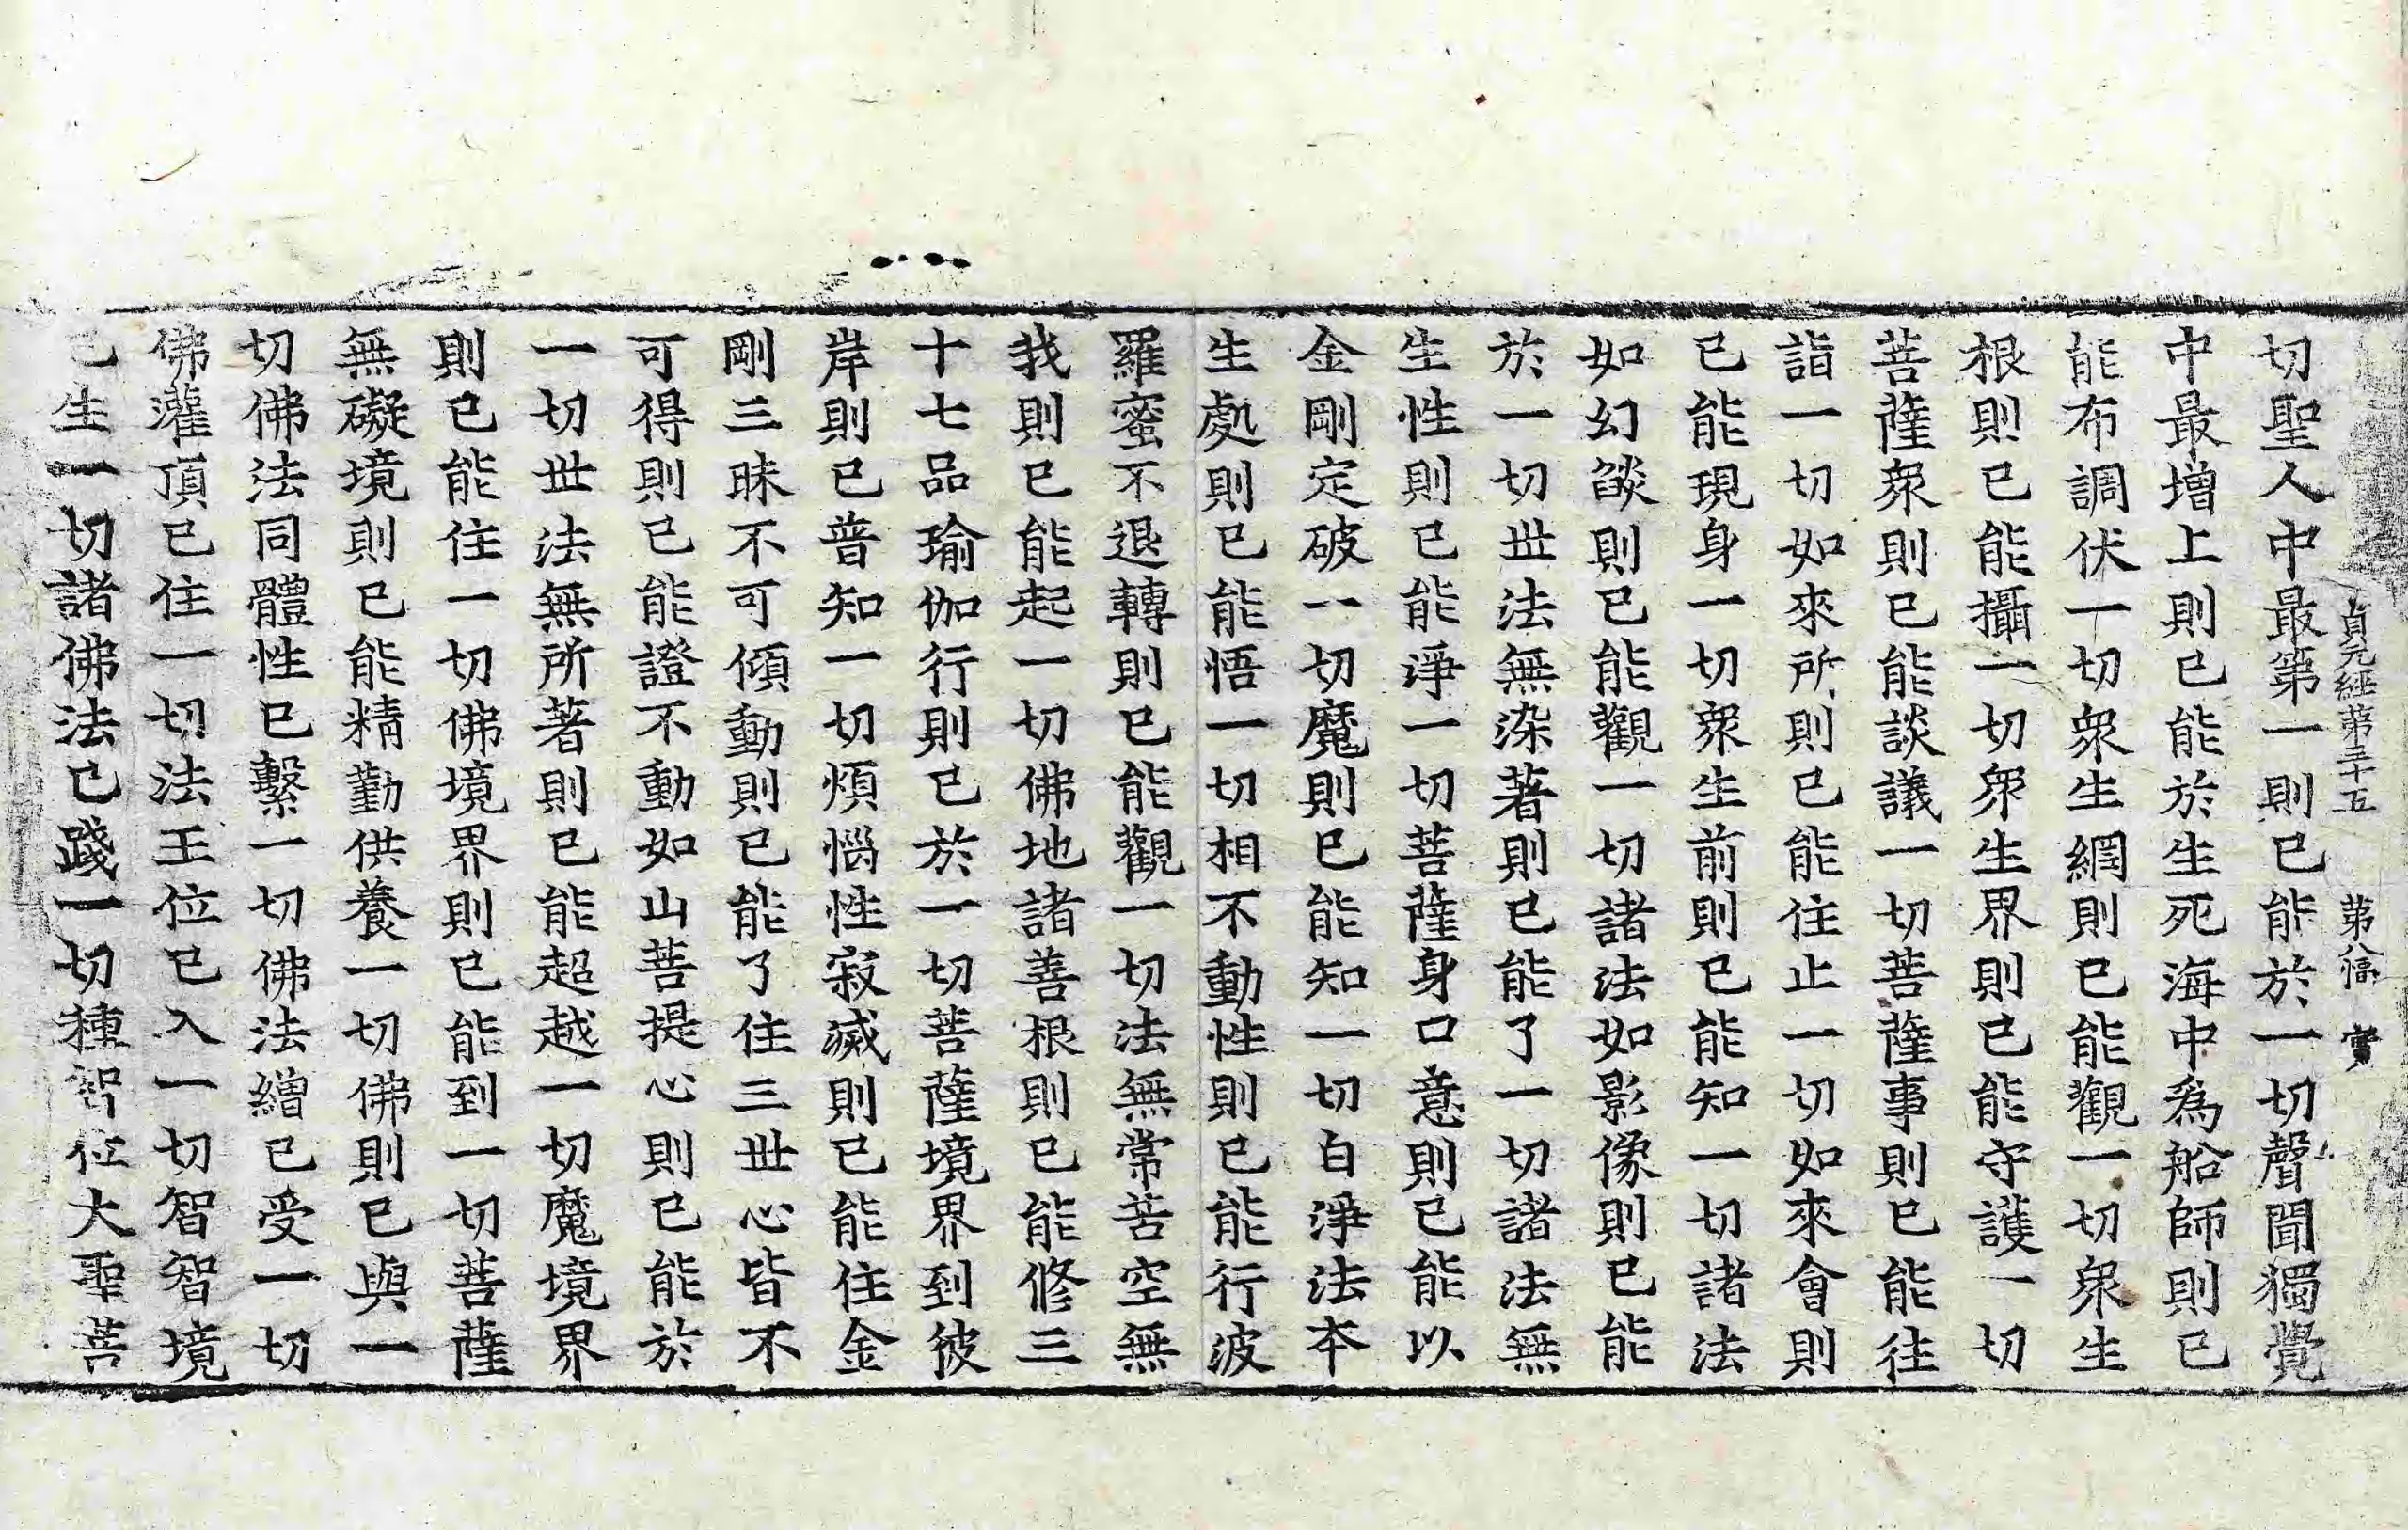 貞元經第三十五 第八張 賞
切聖人中最第一則已能於一切聲聞獨覺
中最增上則已能於生死海中爲船師則已
能布調伏一切衆生網則已能觀一切衆生
根則已能攝一切衆生界則已能守護一切
菩薩衆則已能談議一切菩薩事則已能往
詣一切如來所則已能住止一切如來會則
已能現身一切衆生前則已能知一切諸法
如幻焰則已能觀一切諸法如影像則已能
於一切世法無染著則已能了一切諸法無
生性則已能淨一切菩薩身口意則已能以
金剛定破一切魔則已能知一切白淨法本
生處則已能悟一切相不動性則已能行波
羅蜜不退轉則已能觀一切法無常苦空無
我則已能起一切佛地諸善根則已能修三
十七品瑜伽行則已於一切菩薩境界到彼
岸則已普知一切煩惱性寂滅則已能住金
剛三昧不可傾動則已能了住三世心皆不
可得則已能證不動如山菩提心則已能於
一切世法無所著則已能超越一切魔境界
則已能住一切佛境界則已能到一切菩薩
無礙境則已能精勤供養一切佛則已與一
切佛法同體性已繫一切佛法繒已受一切
佛灌頂已住一切法王位已入一切智智境
已生一切諸佛法已踐一切種智位大聖菩